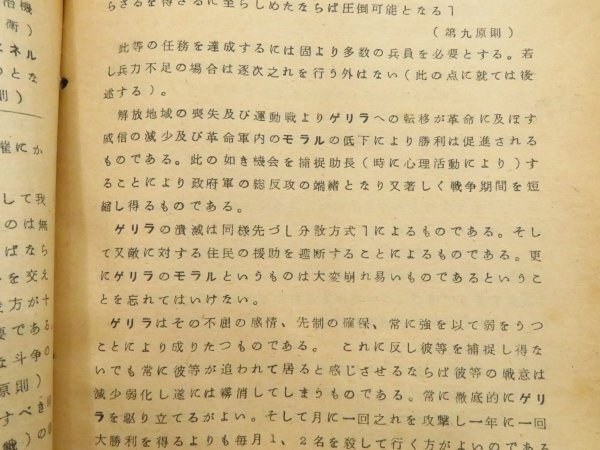 らざるを得ざるに至らしめたならば圧倒可能となる]
(第九原則)
此等の任務を達成するには固より多数の兵員を必要とする。若
し兵力不足の場合は逐次之れを行う外はない(此の点に就ては後
述する)。
解放地域の喪失及び運動戦よりゲリラへの転移が革命に及ぼす
威信の減少及び革命軍内のモラルの低下により勝利は促進される
ものである。此の如き機会を捕捉助長(時に心理活動により)す
ることにより政府軍の総反攻の端緒となり又著しく戦争期間を短
縮し得るものである。
ゲリラの潰滅は同様先づ[分散方式]によるものである。そし
て又敵に対する住民の援助を遮断することによるものである。更
にゲリラのモラルというものは大変崩れ易いものであるというこ
とを忘れてはいけない。
ゲリラはその不屈の感情、先制の確保、常に強を以て弱をうつ
ことにより成りたつものである。これに反し彼等を捕捉し得な
いでも常に彼等が追われて居ると感じさせるならば彼等の戦意は
減少弱化し遂には霧消してしまうものである。常に徹底的にゲリ
ラを駆り立てるがよい。そして月に一回之れを攻撃し一年に一回
大勝利を得るよりも毎月1、2名を殺して行く方がよいのである
治機
衛)
エネル
のとな
則)
催にか
して我
のは無
ばなら
を交え
度方が十
要である
な斗争の
原則)
すべき
戦)の